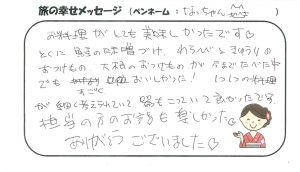 旅の幸せメッセージ (ペンネーム：なっちゃん
お料理がとしても美味しかったです♡
とくに の味噌づけ、わらびときゅうりの
おつけもの、大根のおつけものが 今までたべた中
でも すごく おいしかった！ 1つ1つの料理
が細く考えられていて 器もこっていて良かったです。
担当の方のお話も楽しかった♡
ありがとうございました♡